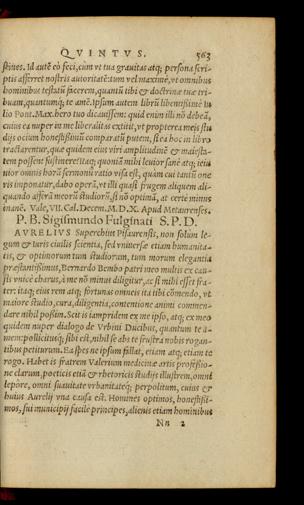 QVINTVS. 563
stines. Id autē eò feci, cùm vt tua grauitas atq; persona scri-
ptis afferret nostris autoritatē: tum vel maximè, vt omnibus
hominibus testatū facerem, quantū tibi & doctrinæ tuæ tri-
buam, quantumq; te amē. Ipsum autem librū libentißimè Iu
lio Pont. Max. hero tuo dicauissem: quid enim illi nō debeā,
cuius ea nuper in me liberalitas extitit, vt propterea meis stu
dijs ocium honestißimū comparatū putem, si ea hoc in libro
tractarentur, quæ quidem eius viri amplitudinē & maiesta-
tem possent sustinere: itaq; quoniā mihi leuior sanè atq; ieiu
nior omnis horū sermonū ratio visa est, quàm cui tantū one
ris imponatur, dabo operā, vt illi quasi frugem aliquem ali-
quando afferā meorū studiorū, si nō optimā, at certè minus
inanē. Vale, VII. Cal. Decem. M. D. X. Apud Metaurenses.
P. B. Sigismundo Fulginati S. P. D.
AVRELIVS Superchius Pisaurensis, non solùm le-
gum & iuris ciuilis scientia, sed vniuersæ etiam humanita-
tis, & optimorum tum studiorum, tum morum elegantia
præstantißimus, Bernardo Bembo patri meo multis ex cau-
sis vnicè charus, à me nō minus diligitur, ac si mihi esset fra-
ter: itaq; eius rem atq; fortunas omneis ita tibi cōmendo, vt
maiore studio, cura, diligentia, contentione animi commen-
dare nihil poßim. Scit is iampridem ex me ipso, atq; ex meo
quidem nuper dialogo de Vrbini Ducibus, quantum te a-
mem: pollicitusq; sibi est, nihil se abs te frustra nobis rogan-
tibus petiturum. Ea spes ne ipsum fallat, etiam atq; etiam te
rogo. Habet is fratrem Valerium medicinæ artis profeßio-
ne clarum, poeticis etiā & rhetoricis studijs illustrem, omni
lepôre, omni suauitate vrbanitateq; perpolitum, cuius &
huius Aurelij vna causa est. Homines optimos, honestißi-
mos, sui municipij facilè principes, alienis etiam hominibus
Nn 2